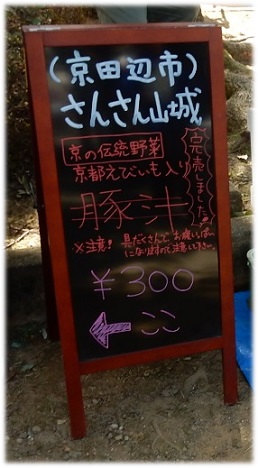 (京田辺市)
さんさん山城
京の伝統野菜
京都えびいも入り
豚汁
完売しました
※注意! 具だくさんで お腹いっぱい
になりますのでご注意下さい。
¥300
ここ